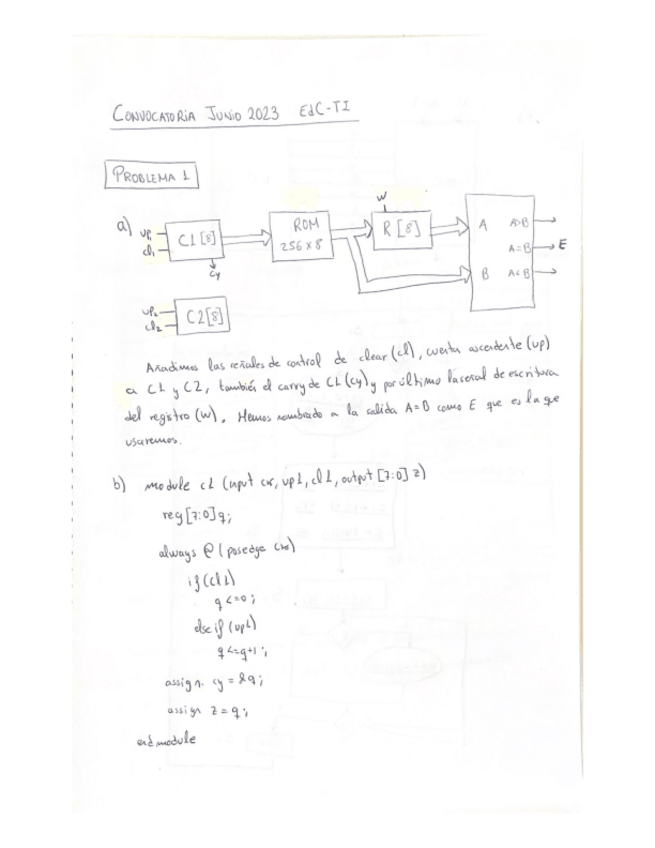 CONVOCATORIA JUNIO 2023 EdC-TI
PROBLEMA 1
a)
up1
cl1
C1 [8]
cy
ROM
256 x 8
w
R [8]
A
B
A>B
A=B
A<B
E
up2
cl2
C2[8]
Añadimos las señales de control de clear (cl), cuenta ascendente (up)
a C1 y C2, también el carry de C1 (cy) y por último la señal de escritura
del registro (w). Hemos nombrado a la salida A=B como E que es la que
usaremos.
b) module c1 (input ck, up1, cl1, output [7:0] z)
reg [7:0] q;
always @ (posedge ck)
if (cl1)
q <= 0;
else if (up1)
q <= q+1;
assign cy = &q;
assign z = q;
endmodule